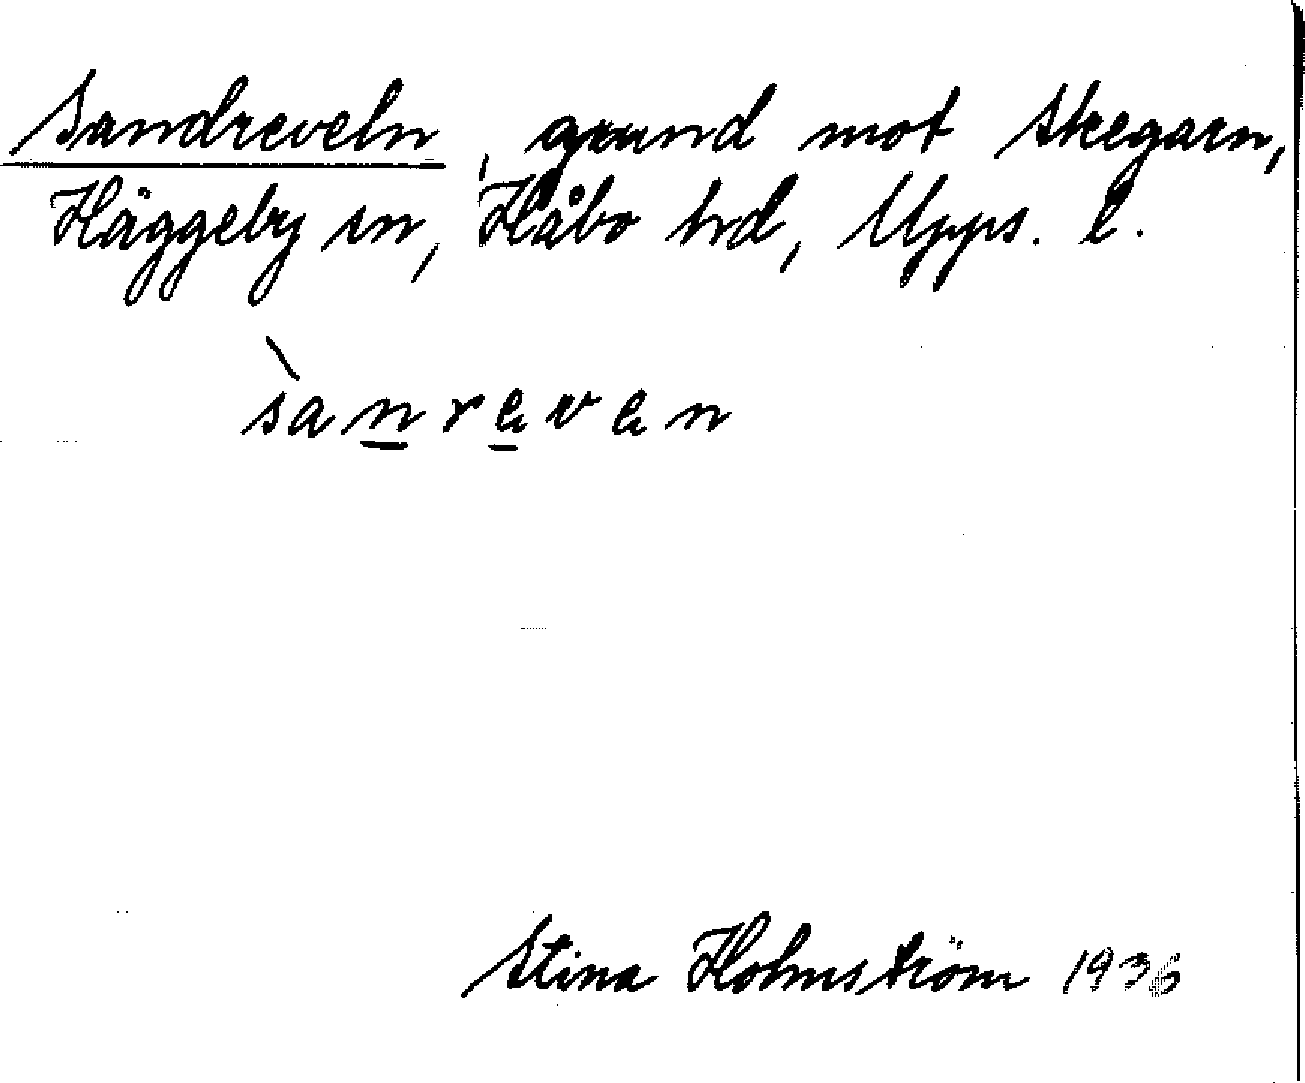 Sandreveln, grund mot Skegarn,
Häggeby sn, Håbo hd, Upps. l.
sànreven
Stina Holmström 1936